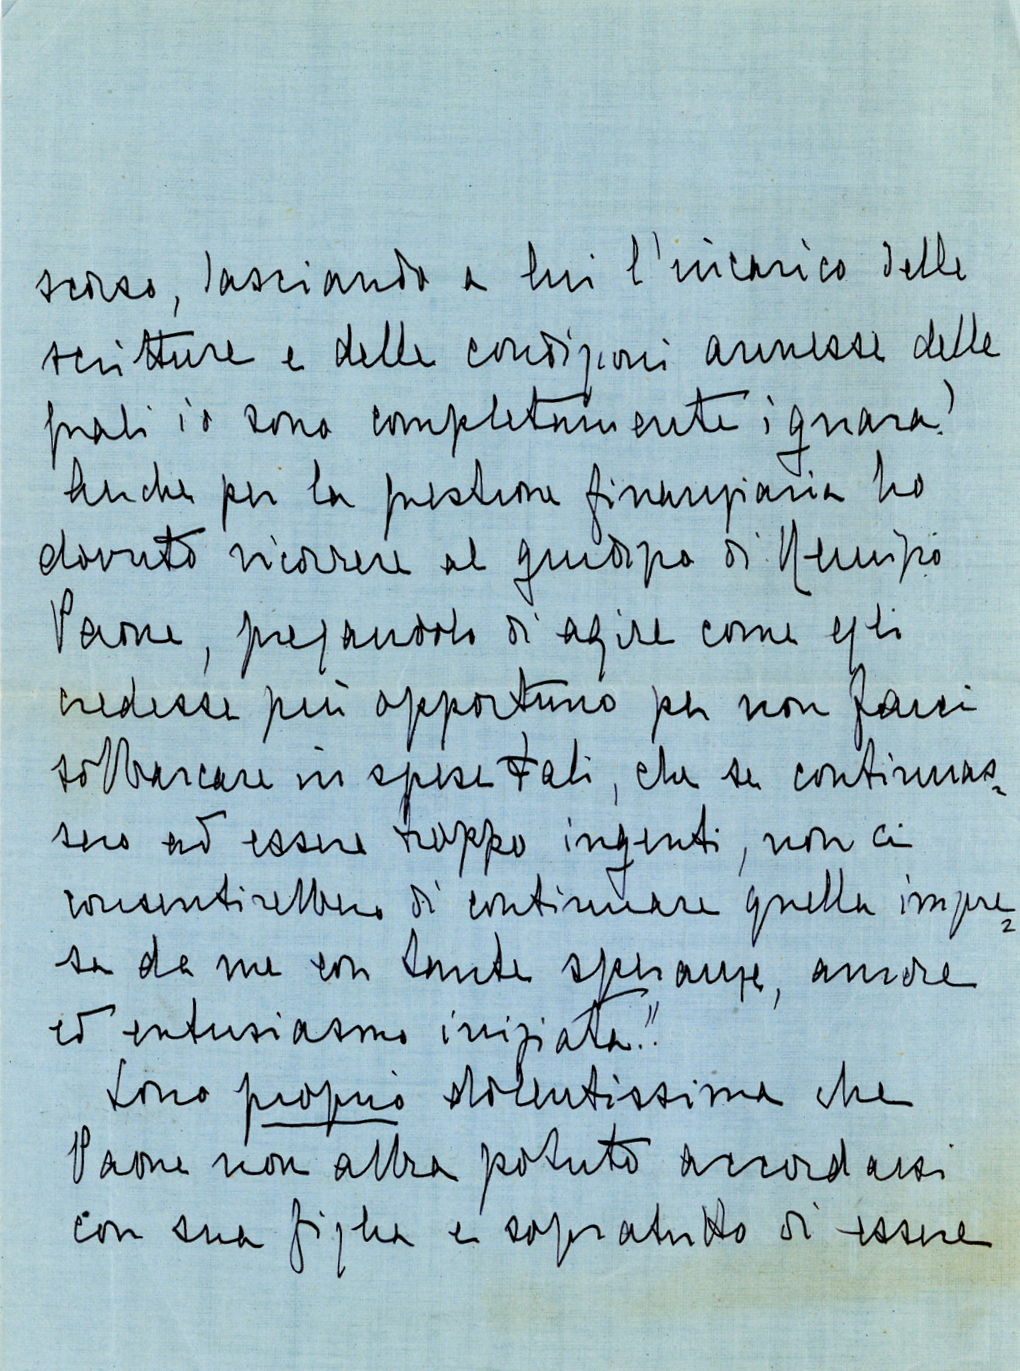 scorso, lasciando a lui l'incarico delle
scritture e delle condizioni annesse delle
quali io sono completamente ignara!
Anche per la gestione finanziaria ho
dovuto ricorrere al giudizio di Remigio
Paone, pregandolo di agire come egli
credesse più opportuno per non farci
sobbarcare in spese tali, che se continuas=
sero ad essere troppo ingenti, non ci
consentirebbero di continuare quella impre=
sa da me con tante speranze, amore
ed entusiasmo iniziata!!
Sono proprio dolentissima che
Paone non abbia potuto accordarsi
con sua figlia e sopratutto di essere